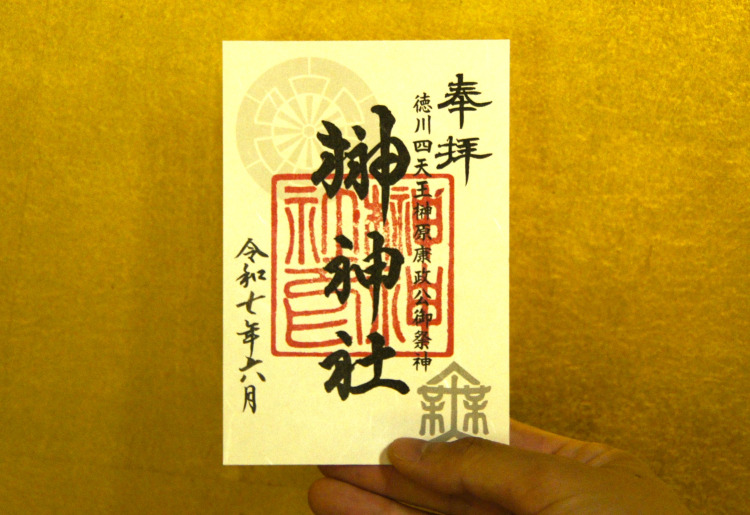 奉拝
徳川四天王榊原康政公御祭神
榊神社
令和七年六月